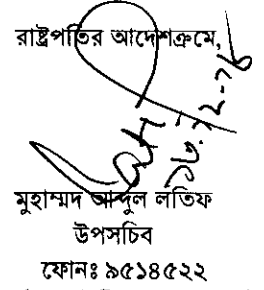 রাষ্ট্রপতির আদেশক্রমে,
মুহাম্মদ আব্দুল লতিফ
উপসচিব
ফোনঃ ৯৫১৪৫২২